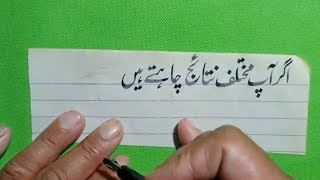 اگر آپ مختلف نتائج چاہتے ہیں